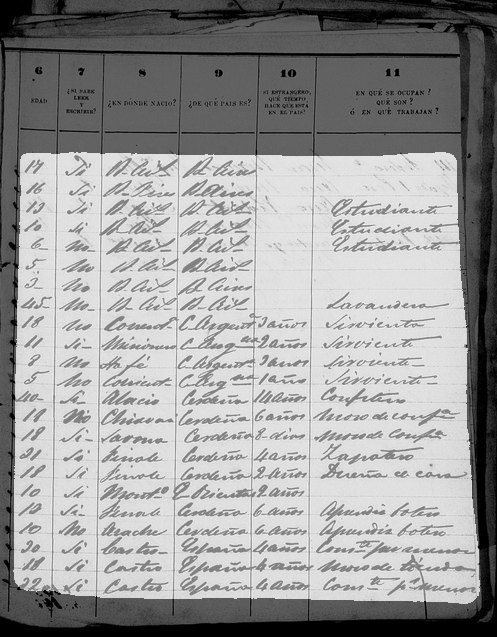 6 7 8 9 10 11
EDAD ¿SI SABE LEER Y ESCRIBIR? ¿EN DÓNDE NACIÓ? ¿DE QUÉ PAÍS ES? SI ESTRANGERO, QUÉ TIEMPO HACE QUE ESTÁ EN EL PAÍS? EN QUÉ SE OCUPAN? QUÉ SON? Ó EN QUÉ TRABAJAN?
17 Si B. Ais B. Aires
16 Si B. Aires B. Aires
13 Si B. Ais B. Ais Estudiante
10 Si B. Ais B. Ais Estudiante
6 No B. Ais B. Ais Estudiante
5 No B. Ais B. Ais
3 No B. Ais B. Aires
45 No B. Ais B. Ais Lavandera
18 No C. Argent.ª 3 años Sirvienta
11 Si Misiones 2 años Sirviente
8 No C. Argent.ª 3 años Sirviente
5 No 1 año Sirviente
40 Si Alacio Cerdeña 14 años Confitero
18 No Chiavari Cerdeña 6 años Moso de conf.ª
18 Si Savona Cerdeña 8 dias Moso de conf.ª
21 Si Cerdeña 4 años Zapatero
18 Si Cerdeña 2 años Dueña de casa
10 Si Mont.º R. Oriental 2 años
12 Si Cerdeña 6 años Aprendis botero
10 No Cerdeña 6 años Aprendis botero
30 Si Castro España 4 años Com.te por menor
18 Si Castro España 4 años Moso de tienda
22 Si Castro España 4 años Com.te p.r menor